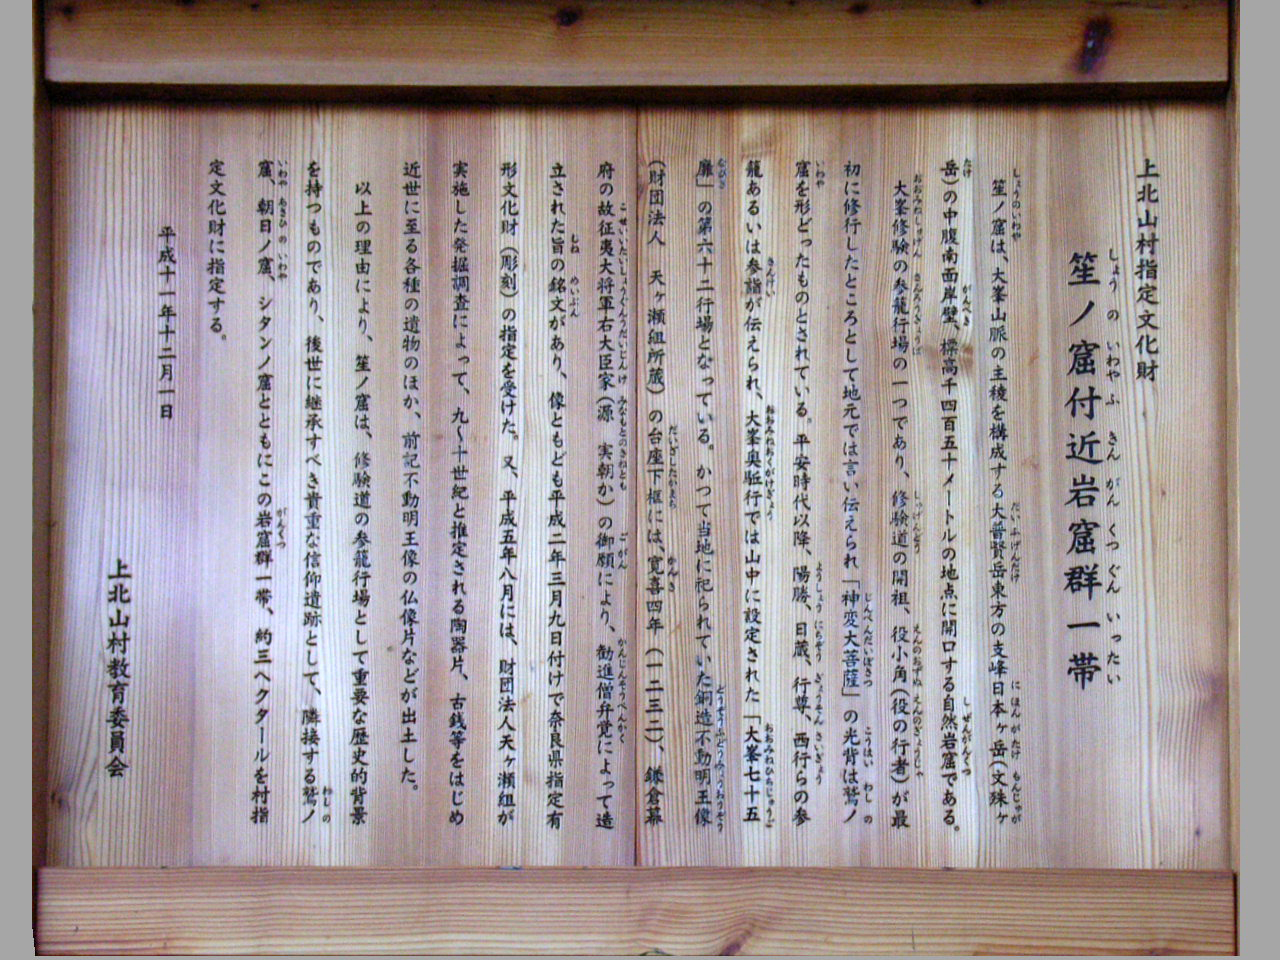 上北山村指定文化財
笙ノ窟付近岩窟群一帯
しょう の いわや ふ きん がん くつ ぐん いったい
笙ノ窟は、大峯山脈の主稜を構成する大普賢岳東方の支峰日本ヶ岳(文殊ヶ
岳)の中腹南面岸壁、標高千四百五十メートルの地点に開口する自然岩窟である。
大峯修験の参籠行場の一つであり、修験道の開祖、役小角(役の行者)が最
初に修行したところとして地元では言い伝えられ「神変大菩薩」の光背は鷲ノ
窟を形どったものとされている。平安時代以降、陽勝、日蔵、行尊、西行らの参
籠あるいは参詣が伝えられ、大峯奥駈行では山中に設定された「大峯七十五
靡」の第六十二行場となっている。かつて当地に祀られていた銅造不動明王像
(財団法人 天ヶ瀬組所蔵)の台座下框には、寛喜四年(一二三二)、鎌倉幕
府の故征夷大将軍右大臣家(源 実朝か)の御願により、勧進僧弁覚によって造
立された旨の銘文があり、像ともども平成二年三月九日付けで奈良県指定有
形文化財(彫刻)の指定を受けた。又、平成五年八月には、財団法人天ヶ瀬組が
実施した発掘調査によって、九〜十世紀と推定される陶器片、古銭等をはじめ
近世に至る各種の遺物のほか、前記不動明王像の仏像片などが出土した。
以上の理由により、笙ノ窟は、修験道の参籠行場として重要な歴史的背景
を持つものであり、後世に継承すべき貴重な信仰遺跡として、隣接する鷲ノ
窟、朝日ノ窟、シタンノ窟とともにこの岩窟群一帯、約三ヘクタールを村指
定文化財に指定する。
平成十一年十二月一日
上北山村教育委員会